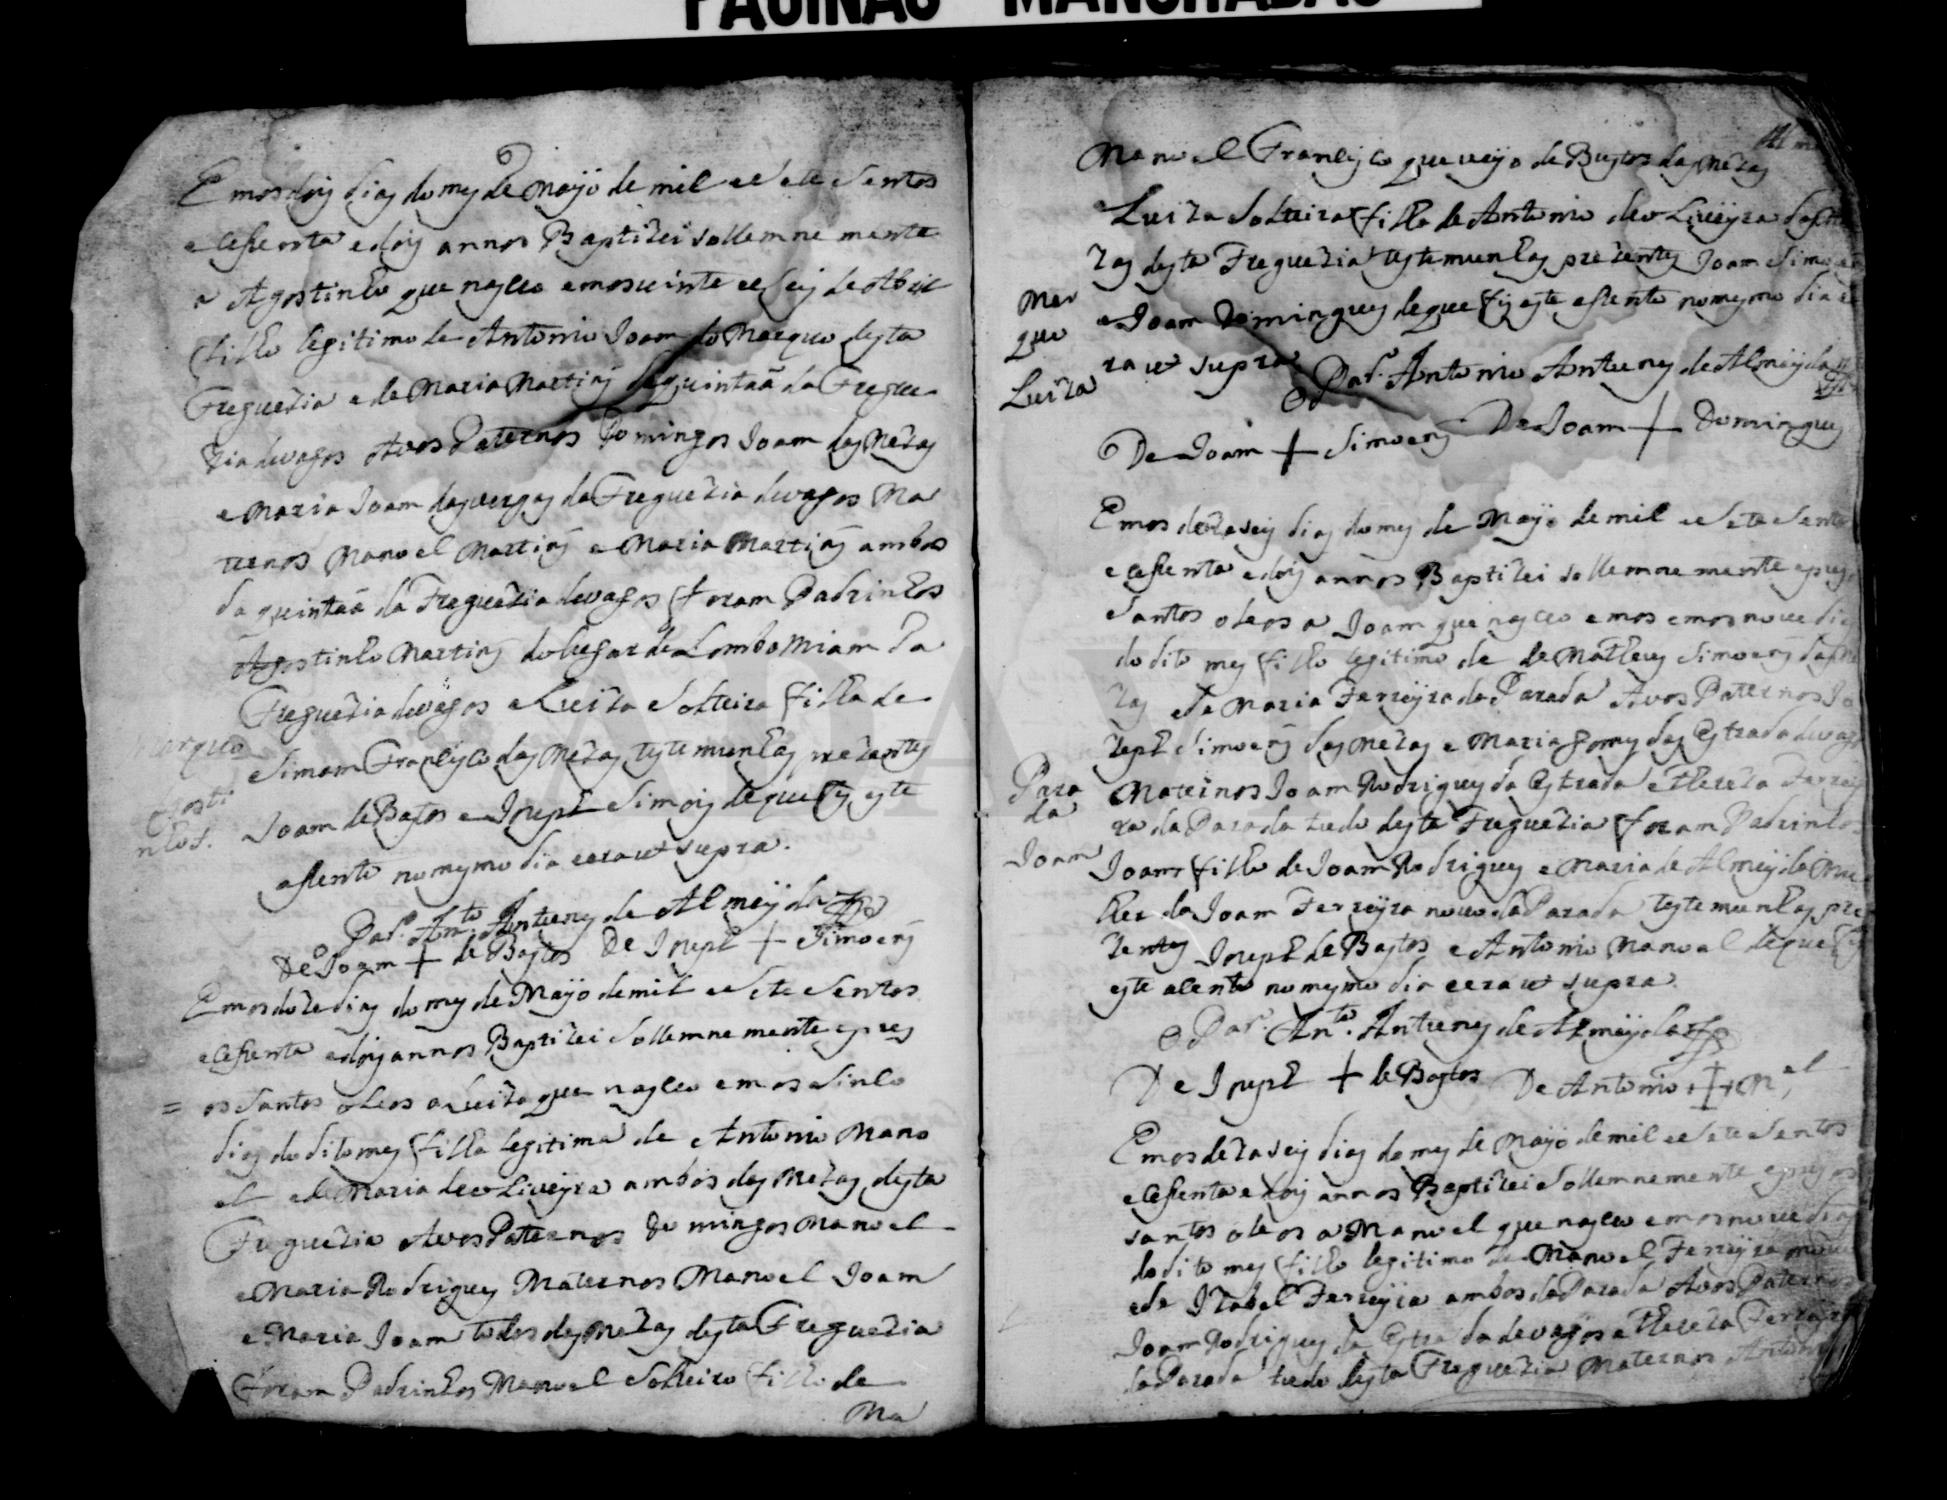 PAGINAS MANCHADAS
Emos doij dias do mes de Mayo de mil e sete sentos
e cesenta e doij annos Baptizei sollemne mente
a Agostinho que nasceo emos vinte e seij de Abril
filho legitimo de Antonio Joam do Marquo desta
Freguezia e de Maria Martins da quintaã da Fregue
zia de vagos Avos Paternos Domingos Joam das Mezas
e Maria Joam das vergas da Freguezia de vagos Ma
ternos Manoel Martins e Maria Martins ambos
da quintaã da Freguezia de vagos foram Padrinhos
Agostinho Martins do lugar de Lombo Miam da
Freguezia de vagos e Luiza Solteira filha de
Simam Francisco das Mezas testemunhas prezentes
Joam de Bastos e Joseph Simois de que fis este
asento no mesmo dia e era ut supra.
Marquo
Agosti
nho f.
Par.º An.to Antunes de Almeyda
De Joam + de Bastos De Joseph + Simoens
Emos doze dias do mes de Mayo de mil e sete sentos
e cesenta e doij annos Baptizei Sollemne mente e pus
os Santos oleos a Luiza que nasceo emos Sinco
dias do dito mes filha legitima de Antonio Mano
el e de Maria de oLiveyra ambos das Mezas desta
Freguezia Avos Paternos Domingos Manoel
e Maria Rodrigues Maternos Manoel Joam
e Maria Joam todos das Mezas desta Freguezia
foram Padrinhos Manoel Solteiro filho de
Ma
Manoel Francisco que veyo de Bustos das Mezas
e Luiza Solteira filha de Antonio de oLiveyra das Me
zas desta Freguezia testemunhas prezentes Joam Simoens
e Joam Domingues de que fis este asento no mesmo dia e e
ra ut supra
Luiza
O Par.º Antonio Antunes de Almeyda
De Joam + Simoens De Joam + Domingues
Emos dezaseij dias do mes de Mayo de mil e sete sentos
e cesenta e doij annos Baptizei sollemne mente e pus os
Santos oleos a Joam que nasceo emos emos nove dias
do dito mes filho legitimo de de Matheus Simoens das Me
zas e de Maria Ferreyra da Parada Avos Paternos Jo
zeph Simoens das Mezas e Maria Gomes das Estrada de vagos
Maternos Joam Rodrigues da Estrada e Thereza Ferrey
ra da Parada tudo desta Freguezia foram Padrinhos
Joam filho de Joam Rodrigues e Maria de Almeyda mu
lher de Joam Ferreyra novo da Parada testemunhas pre
zentes Joseph de Bastos e Antonio Manoel de que fis
este asento no mesmo dia e era ut supra
Para
da
Joam
O Par.º An.to Antunes de Almeyda
De Joseph + de Bastos De Antonio + M.el
Emos dezaseij dias do mes de Mayo de mil e sete sentos
e cesenta e doij annos Baptizei Sollemne mente e pus os
santos oleos a Manoel que nasceo emos nove dias
do dito mes filho legitimo de Manoel Ferreyra novo
e de Izabel Ferreyra ambos da Parada Avos Paternos
Joam Rodrigues da Estrada de vagos e Thereza Ferreyra
da Parada tudo desta Freguezia Maternos Antonio